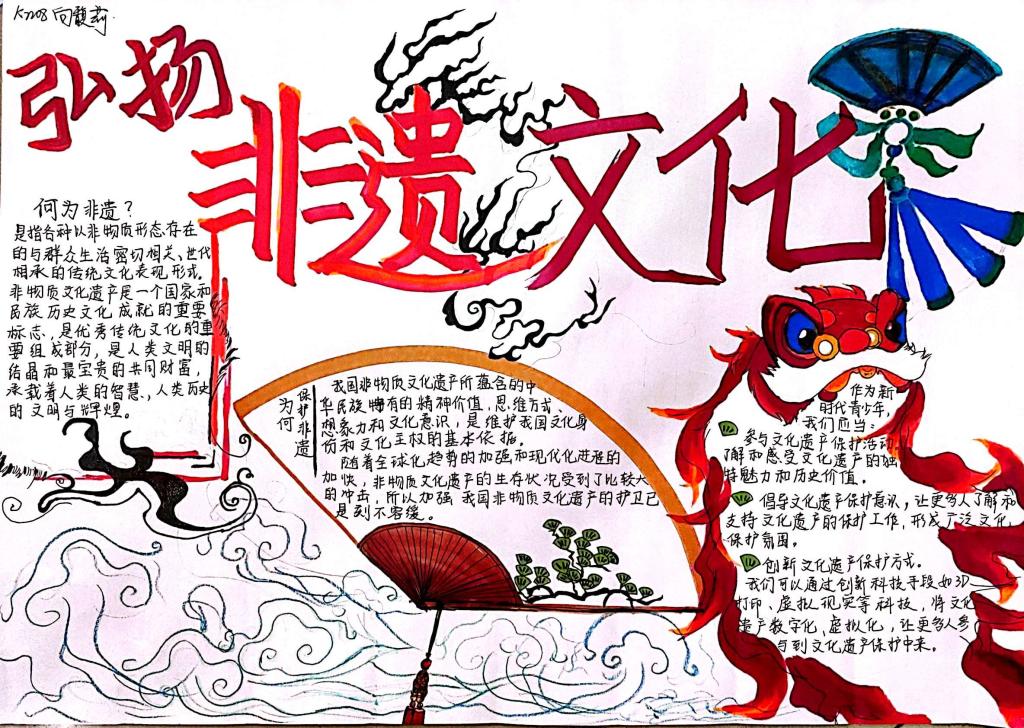 K2208 向馥莉
弘扬
非遗文化
何为非遗？
是指各种以非物质形态存在
的与群众生活密切相关、世代
相承的传统文化表现形式。
非物质文化遗产是一个国家和
民族历史文化成就的重要
标志，是优秀传统文化的重
要组成部分，是人类文明的
结晶和最宝贵的共同财富，
承载着人类的智慧、人类历史
的文明与辉煌。
为何
保护非遗
我国非物质文化遗产所蕴含的中
华民族特有的精神价值，思维方式、
想象力和文化意识，是维护我国文化身
份和文化主权的基本依据。
随着全球化趋势的加强和现代化进程的
加快，非物质文化遗产的生存状况受到了比较大
的冲击，所以加强我国非物质文化遗产的护卫已
是刻不容缓。
作为新
时代青少年，
我们应当：
参与文化遗产保护活动，
了解和感受文化遗产的独
特魅力和历史价值。
倡导文化遗产保护意识，让更多人了解和
支持文化遗产的保护工作，形成广泛文化
保护氛围。
创新文化遗产保护方式。
我们可以通过创新科技手段如3D
打印、虚拟现实等科技，将文化
遗产数字化、虚拟化，让更多人参
与到文化遗产保护中来。